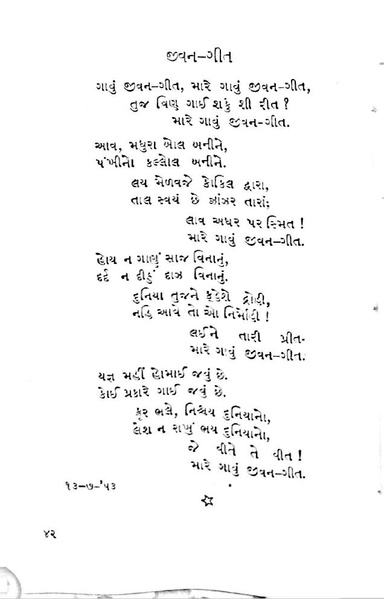 જીવન–ગીત
ગાવું જીવન–ગીત, મારે ગાવું જીવન–ગીત,
તુજ વિણુ ગાઈ શકું શી રીત ?
મારે ગાવું જીવન–ગીત.
આવ, મધુરા બોલ બનીને,
પંખીનો કલ્લોલ બનીને.
લય મેળવજે કોકિલ દ્વારા,
તાલ સ્વયં છે ઝાંઝર તારાં;
લાવ અધર પર સ્મિત !
મારે ગાવું જીવન–ગીત.
હોય ન ગાણું સાજ વિનાનું,
દર્દ ન દીઠું દાઝ વિનાનું.
દુનિયા તુજને કહેશે દ્રોહી,
નહિ આવે તો ઓ નિર્મોહી !
લઈને તારી પ્રીત.
મારે ગાવું જીવન–ગીત.
યજ્ઞ મહીં હોમાઈ જવું છે.
કોઈ પ્રકારે ગાઈ જવું છે.
ક્રૂર ભલે, નિશ્ચય દુનિયાનો,
લેશ ન રાખું ભય દુનિયાનો,
જે વીતે તે વીત !
મારે ગાવું જીવન–ગીત.
૧૩–૭–'૫૩
૪૨